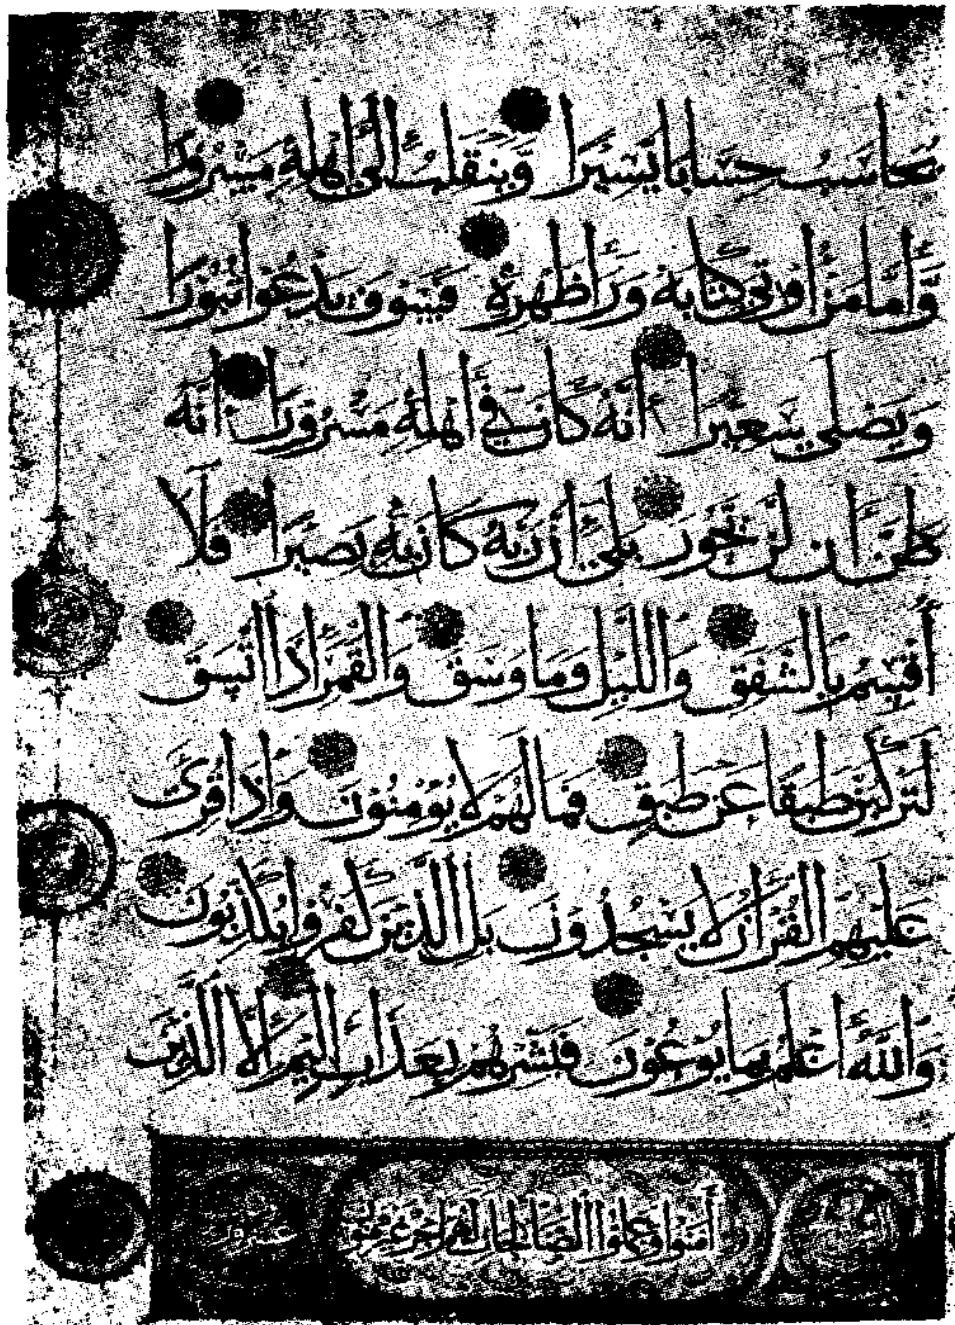 يُحَاسَبُ حِسَابًا يَسِيرًا وَيَنقَلِبُ إِلَى أَهْلِهِ مَسْرُورًا
وَأَمَّا مَنْ أُوتِيَ كِتَابَهُ وَرَاءَ ظَهْرِهِ فَسَوْفَ يَدْعُوا ثُبُورًا
وَيَصْلَى سَعِيرًا إِنَّهُ كَانَ فِي أَهْلِهِ مَسْرُورًا إِنَّهُ
ظَنَّ أَن لَّن يَحُورَ بَلَى إِنَّ رَبَّهُ كَانَ بِهِ بَصِيرًا فَلَا
أُقْسِمُ بِالشَّفَقِ وَاللَّيْلِ وَمَا وَسَقَ وَالْقَمَرِ إِذَا اتَّسَقَ
لَتَرْكَبُنَّ طَبَقًا عَن طَبَقٍ فَمَا لَهُمْ لَا يُؤْمِنُونَ وَإِذَا قُرِئَ
عَلَيْهِمُ الْقُرْآنُ لَا يَسْجُدُونَ بَلِ الَّذِينَ كَفَرُوا يُكَذِّبُونَ
وَاللَّهُ أَعْلَمُ بِمَا يُوعُونَ فَبَشِّرْهُم بِعَذَابٍ أَلِيمٍ إِلَّا الَّذِينَ
آمَنُوا وَعَمِلُوا الصَّالِحَاتِ لَهُمْ أَجْرٌ غَيْرُ مَمْنُونٍ